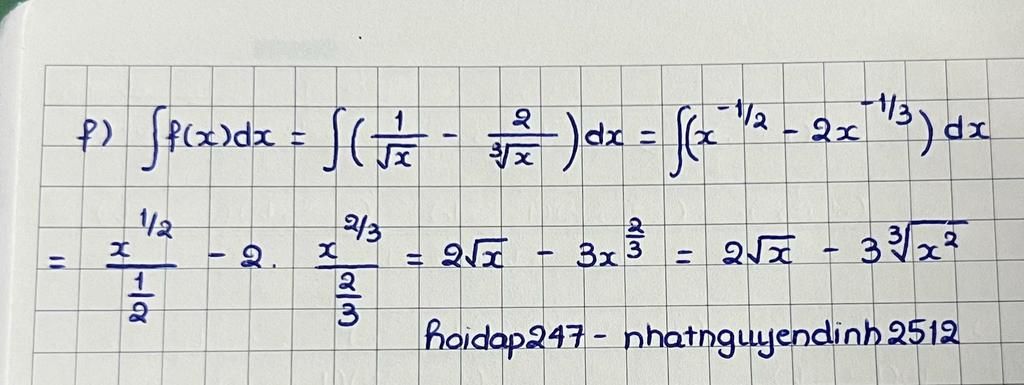 f) ∫f(x)dx = ∫(1/√x - 2/∛x)dx = ∫(x^-1/2 - 2x^-1/3) dx
= x^1/2 / 1/2 - 2. x^2/3 / 2/3 = 2√x - 3x^2/3 = 2√x - 3∛x²
hoidap247 - nhatnguyendinh2512